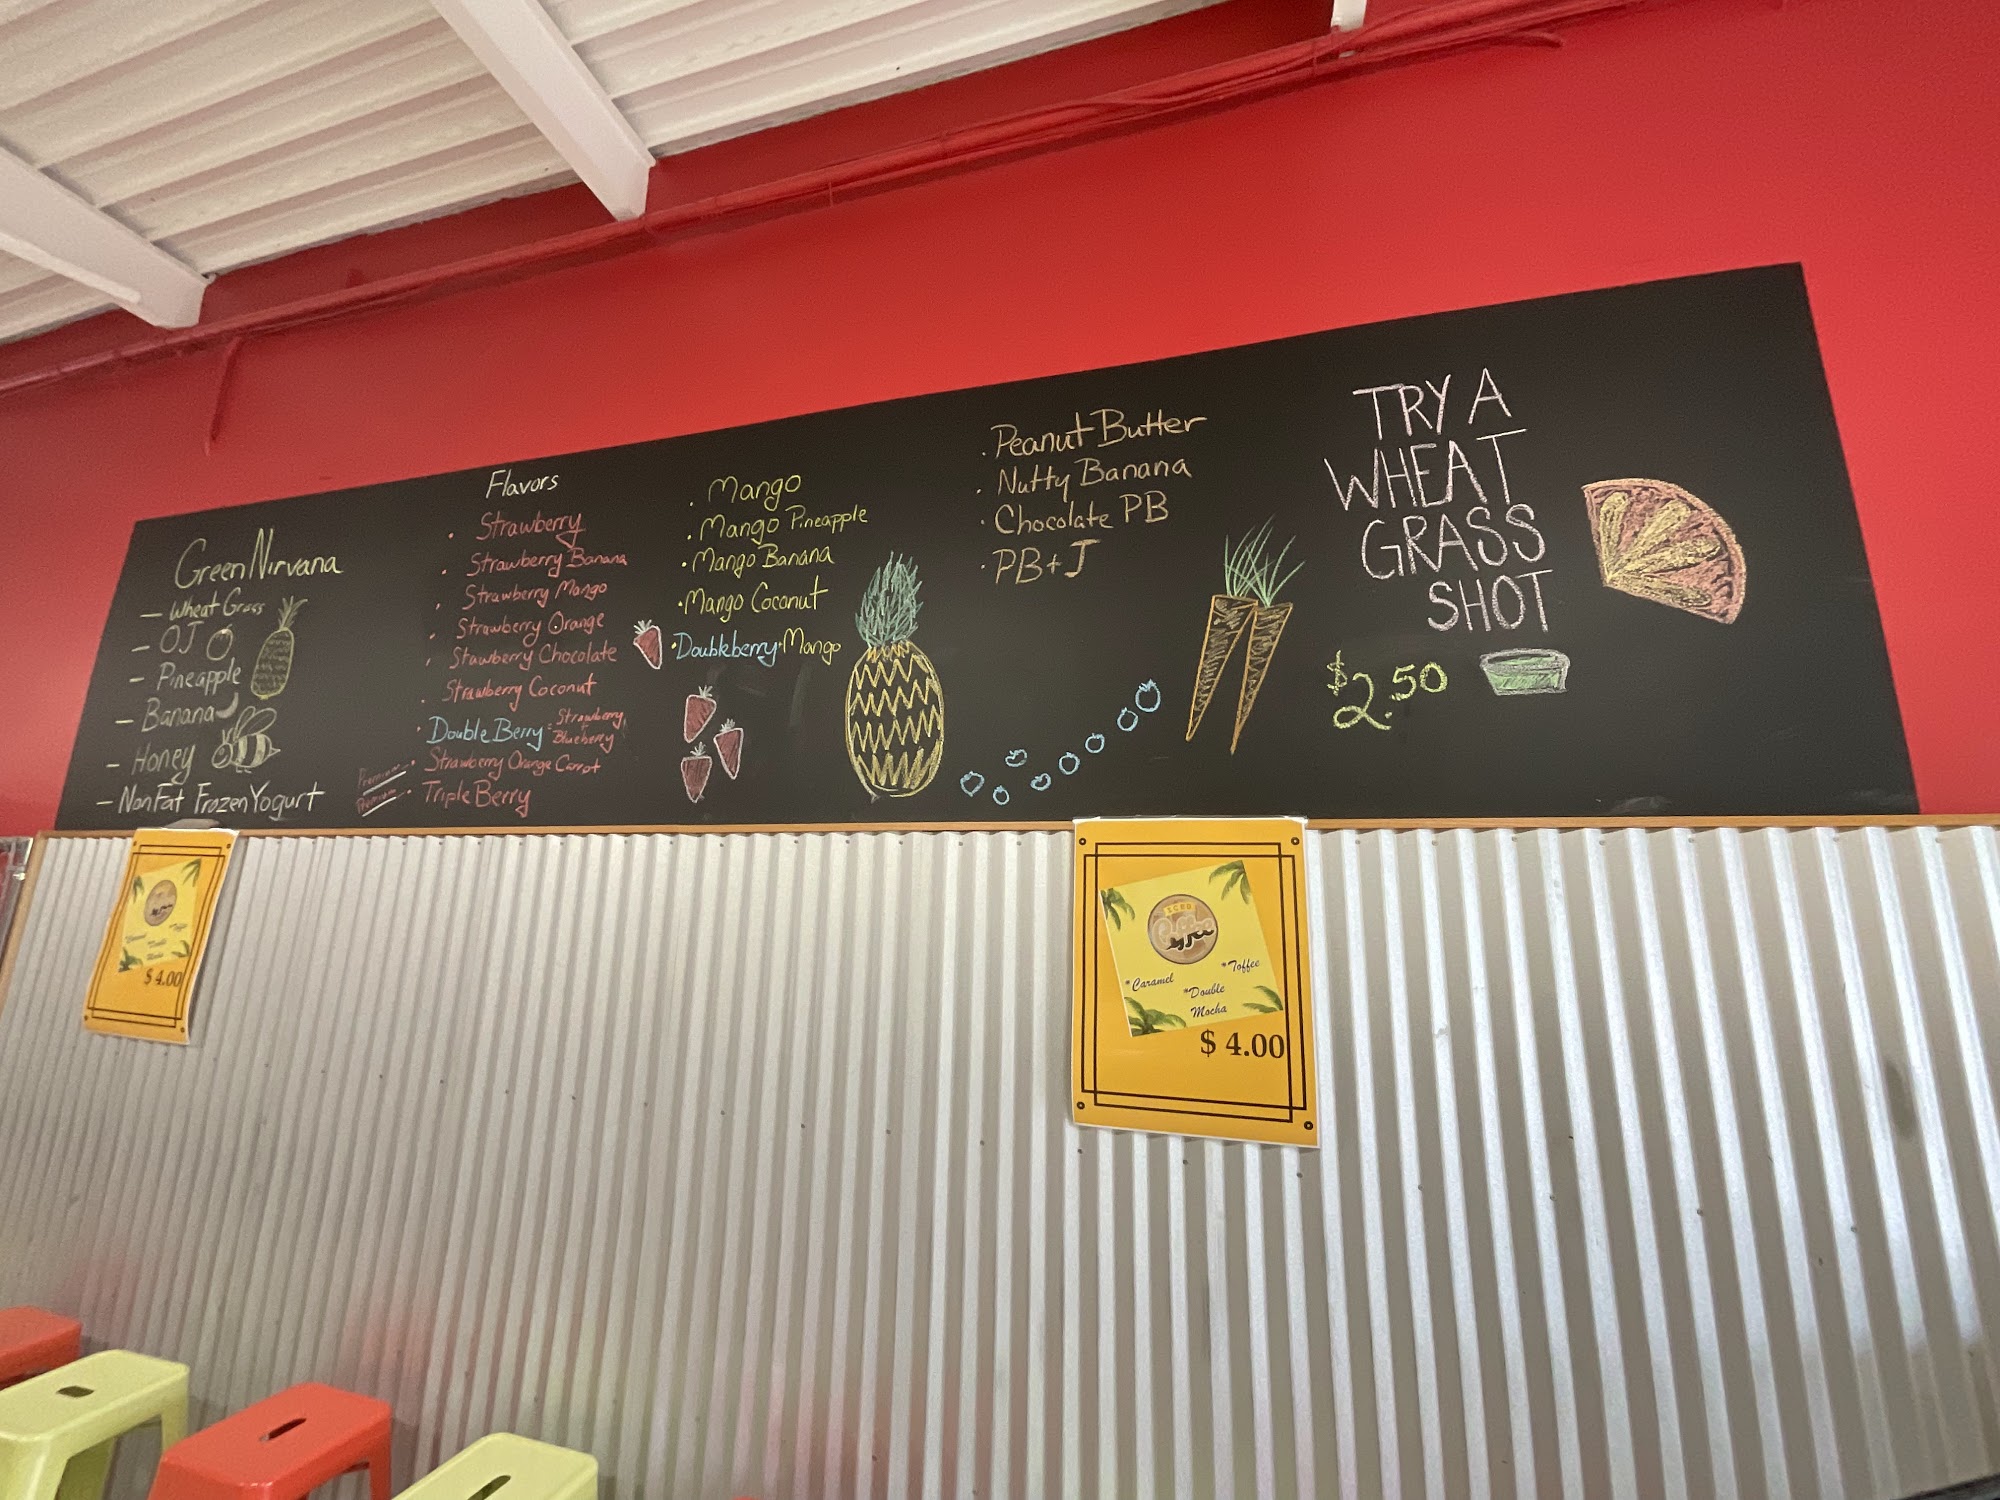 Green Nirvana
- Wheat Grass
- OJ
- Pineapple
- Banana
- Honey
- NonFat Frozen Yogurt
Flavors
· Strawberry
· Strawberry Banana
· Strawberry Mango
· Strawberry Orange
· Stawberry Chocolate
· Strawberry Coconut
· Double Berry : Strawberry
+ Blueberry
Premium · Strawberry Orange Carrot
Premium · Triple Berry
· Mango
· Mango Pineapple
· Mango Banana
· Mango Coconut
· Doubleberry · Mango
· Peanut Butter
· Nutty Banana
· Chocolate PB
· PB+J
TRY A
WHEAT
GRASS
SHOT
$2.50
$ 4.00
ICED
Coffee
*Caramel
*Toffee
*Double
Mocha
$ 4.00